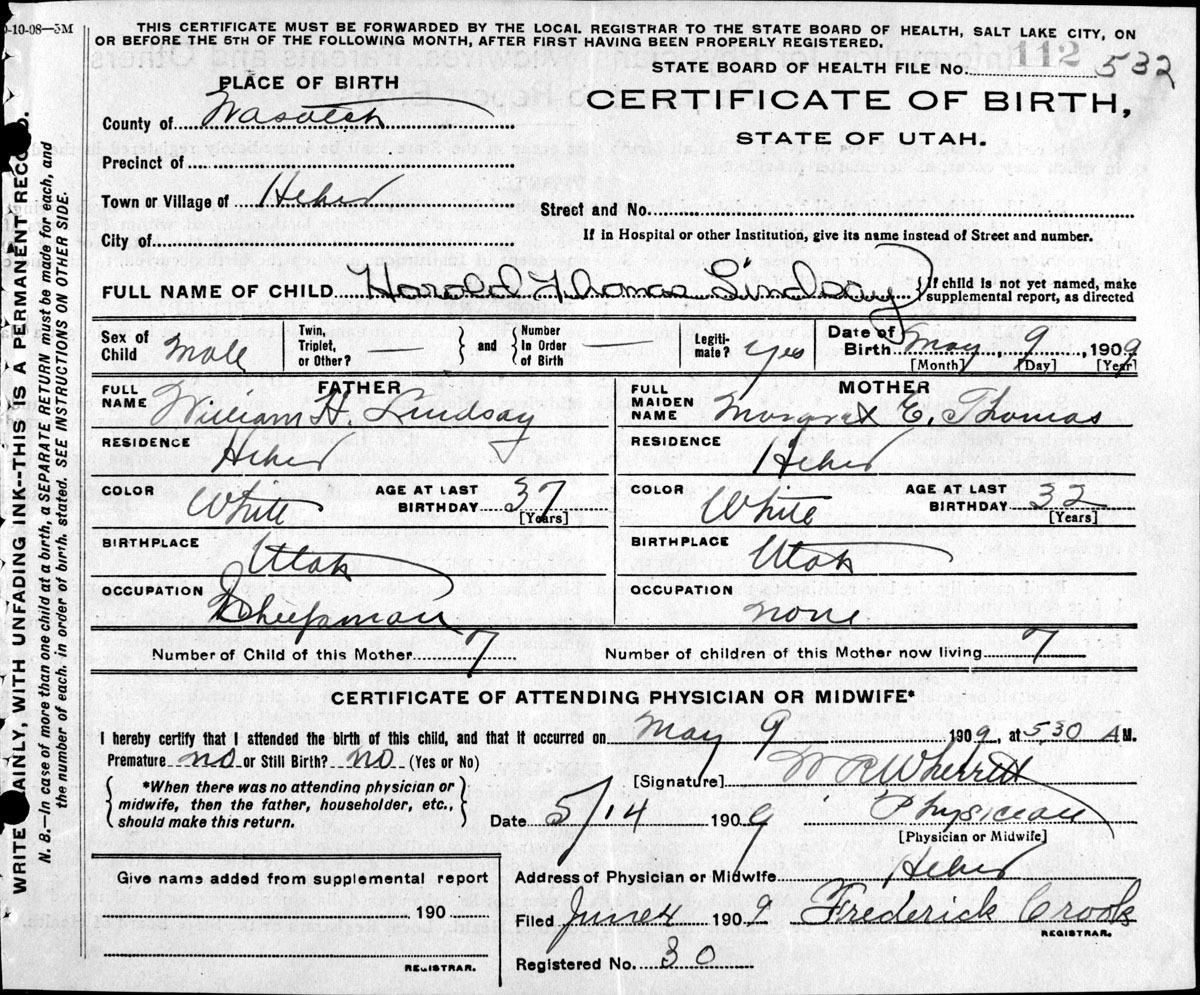 0-10-08—5M
THIS CERTIFICATE MUST BE FORWARDED BY THE LOCAL REGISTRAR TO THE STATE BOARD OF HEALTH, SALT LAKE CITY, ON
OR BEFORE THE 5TH OF THE FOLLOWING MONTH, AFTER FIRST HAVING BEEN PROPERLY REGISTERED.
STATE BOARD OF HEALTH FILE No. 112 532
PLACE OF BIRTH
CERTIFICATE OF BIRTH,
STATE OF UTAH.
County of Wasatch
Precinct of
Town or Village of Heber
Street and No.
City of
If in Hospital or other Institution, give its name instead of Street and number.
FULL NAME OF CHILD Harold Thomas Lindsay
{If child is not yet named, make
supplemental report, as directed
Sex of Child Male
Twin, Triplet, or Other? —
and
Number In Order of Birth —
Legitimate? Yes
Date of Birth May 9, 1909
[Month] [Day] [Year]
FATHER
FULL NAME William H. Lindsay
RESIDENCE Heber
COLOR White
AGE AT LAST BIRTHDAY 37
[Years]
BIRTHPLACE Utah
OCCUPATION Sheepman
MOTHER
FULL MAIDEN NAME Margaret E. Thomas
RESIDENCE Heber
COLOR White
AGE AT LAST BIRTHDAY 32
[Years]
BIRTHPLACE Utah
OCCUPATION None
Number of Child of this Mother 7
Number of children of this Mother now living 7
CERTIFICATE OF ATTENDING PHYSICIAN OR MIDWIFE*
I hereby certify that I attended the birth of this child, and that it occurred on May 9 1909, at 530 AM.
Premature no or Still Birth? no (Yes or No)
[Signature] W R Wherritt
*When there was no attending physician or
midwife, then the father, householder, etc.,
should make this return.
Date 5/14 1909
Physician
[Physician or Midwife]
Give name added from supplemental report
190
REGISTRAR.
Address of Physician or Midwife Heber
Filed June 4 1909 Frederick Crook
REGISTRAR.
Registered No. 30
WRITE PLAINLY, WITH UNFADING INK--THIS IS A PERMANENT RECORD.
N. B.—In case of more than one child at a birth, a SEPARATE RETURN must be made for each, and
the number of each, in order of birth, stated. SEE INSTRUCTIONS ON OTHER SIDE.